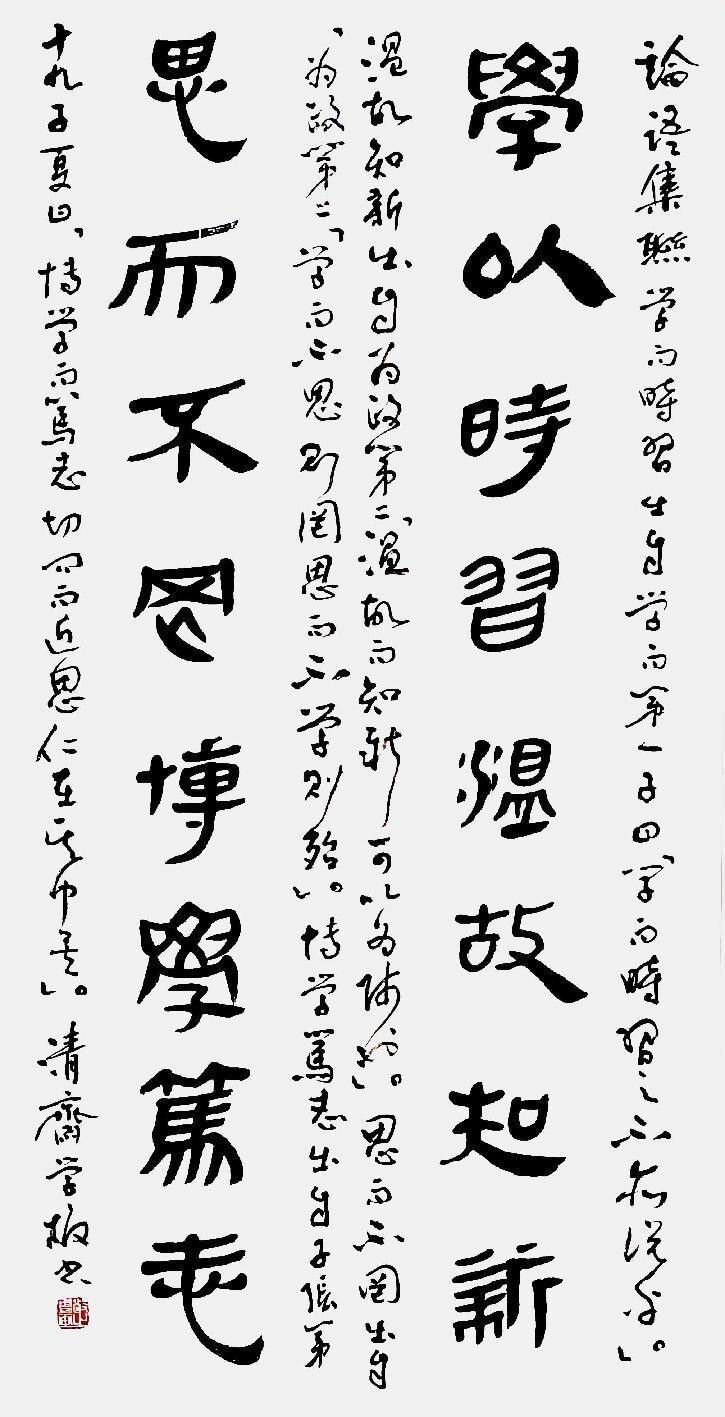 論語集聯 学而時習出自学而第一子曰「学而時習之不亦说乎」。
學以時習溫故知新
温故知新出自为政第二「温故而知新可以为师矣」。思而不罔出自
「为政第二」学而不思则罔思而不学则殆」。博学篤志出自子张第
思而不罔博學篤志
十九子夏曰、博学而篤志切问而近思仁在其中矣」。清齋学板书